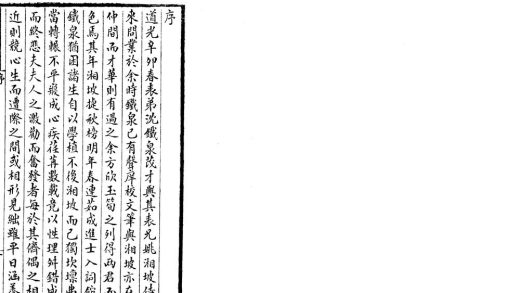 序
道光辛卯春表弟沈鐵泉茂才與其表兄姚湘坡偕
來問業於余時鐵泉已有聲庠校文筆與湘坡亦在
仲間而才華則有過之余方欣玉筍之列得兩君而
色焉其年湘坡捷秋榜明年春連茹成進士入詞館
鐵泉猶困諸生自以學植不後湘坡而己獨坎壈弗
當轉輾不平癥成心疾荏苒數載竟以性理舛錯成
而終悲夫夫人之激勸而奮發者每於其儕偶之相
近則競心生而遭際之間或相形見絀雖平日涵養
序